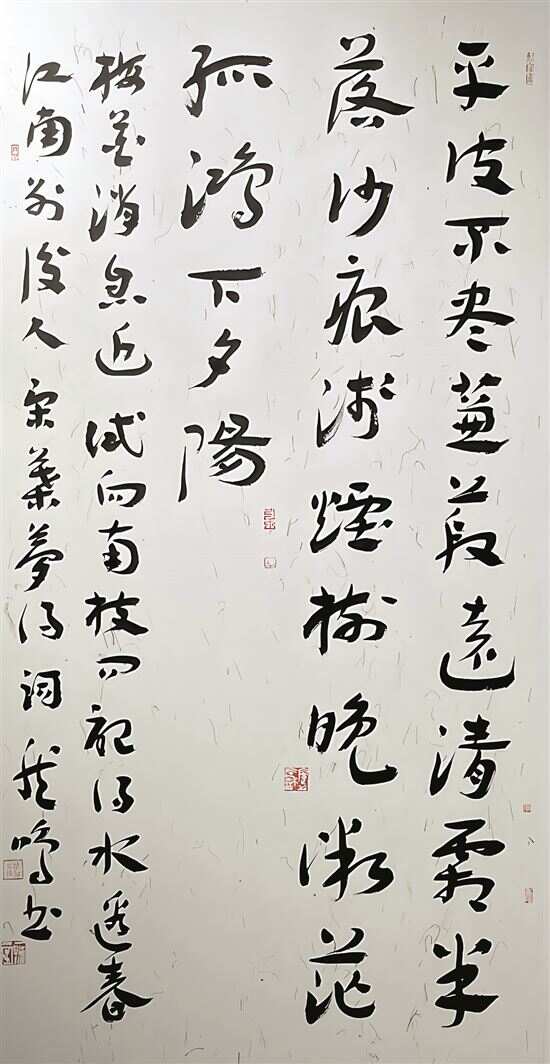 平波不尽蒹葭遠清霜半
落沙痕淺煙樹晚微茫
孤鴻下夕陽
梅花消息近試向南枝問記得水邊春
江南別後人宋葉夢得詞鳴書